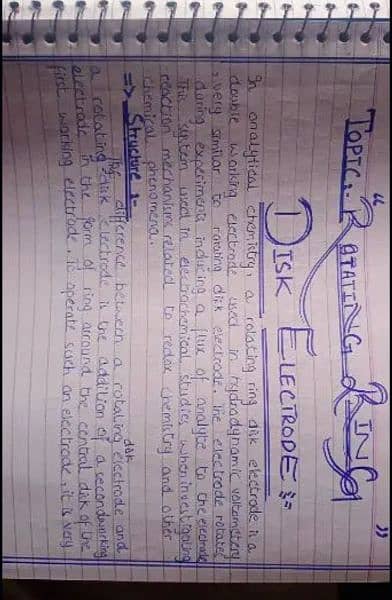 TOPIC:- "ROTATING RING"
DISK ELECTRODE:-
In analytical chemistry, a rotating ring disk electrode is a
double working electrode used in hydrodynamic voltametery
, very similar to rotating disk electrode. The electrode rotates
during experiments inducing a flux of analyte to the electrode
This system used in electrochemical studies when investigating
reaction mechanisms related to redox chemistry and other
chemical phenomena.
=> Structure:-
The difference between a rotating disk electrode and
a rotating disk electrode is the addition of a second working
electrode in the form of ring arround the central disk of the
first working electrode. To operate such an electrode, it is very